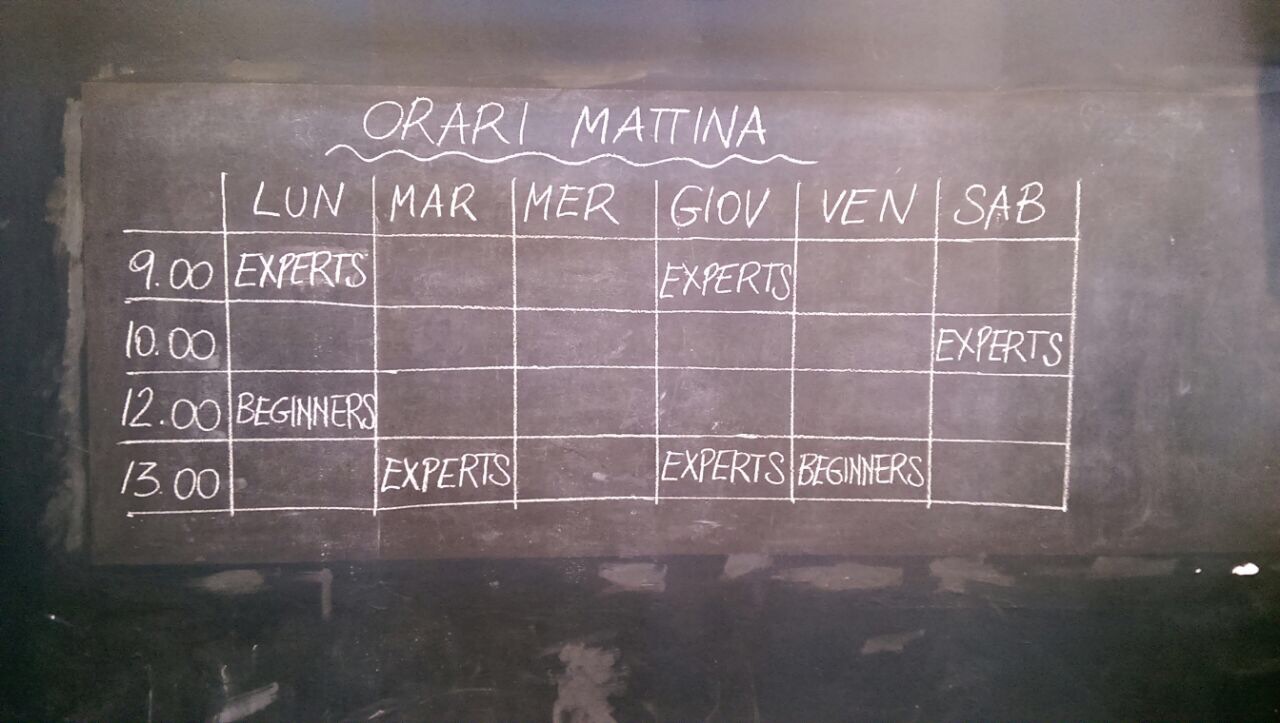 ORARI MATTINA
LUN MAR MER GIOV VEN SAB
9.00 EXPERTS EXPERTS
10.00 EXPERTS
12.00 BEGINNERS
13.00 EXPERTS EXPERTS BEGINNERS